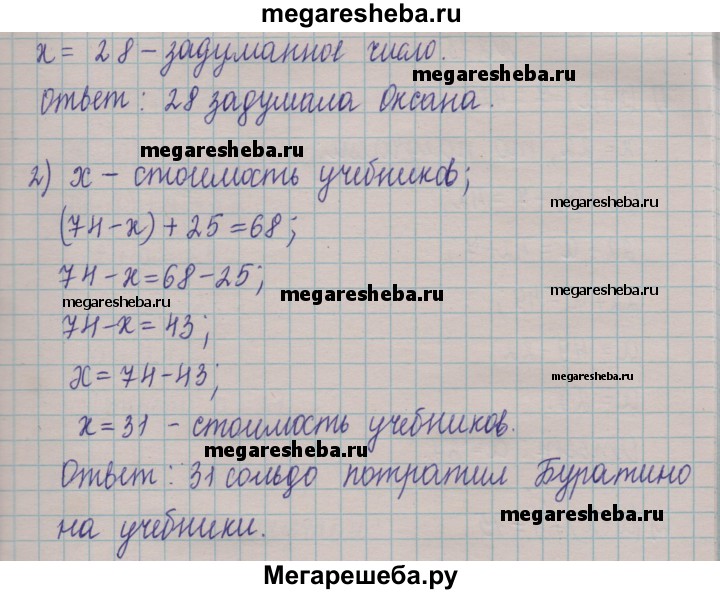 megaresheba.ru
x = 28 – задуманное число.
megaresheba.ru
Ответ: 28 задумала Оксана.
megaresheba.ru
2) x – стоимость учебников;
megaresheba.ru
(74-x) + 25 = 68;
74-x = 68-25;
megaresheba.ru
megaresheba.ru
megaresheba.ru
74-x = 43;
x = 74-43;
megaresheba.ru
x = 31 – стоимость учебников.
megaresheba.ru
Ответ: 31 сольдо потратил Буратино
на учебники.
megaresheba.ru
Мегарешеба.ру